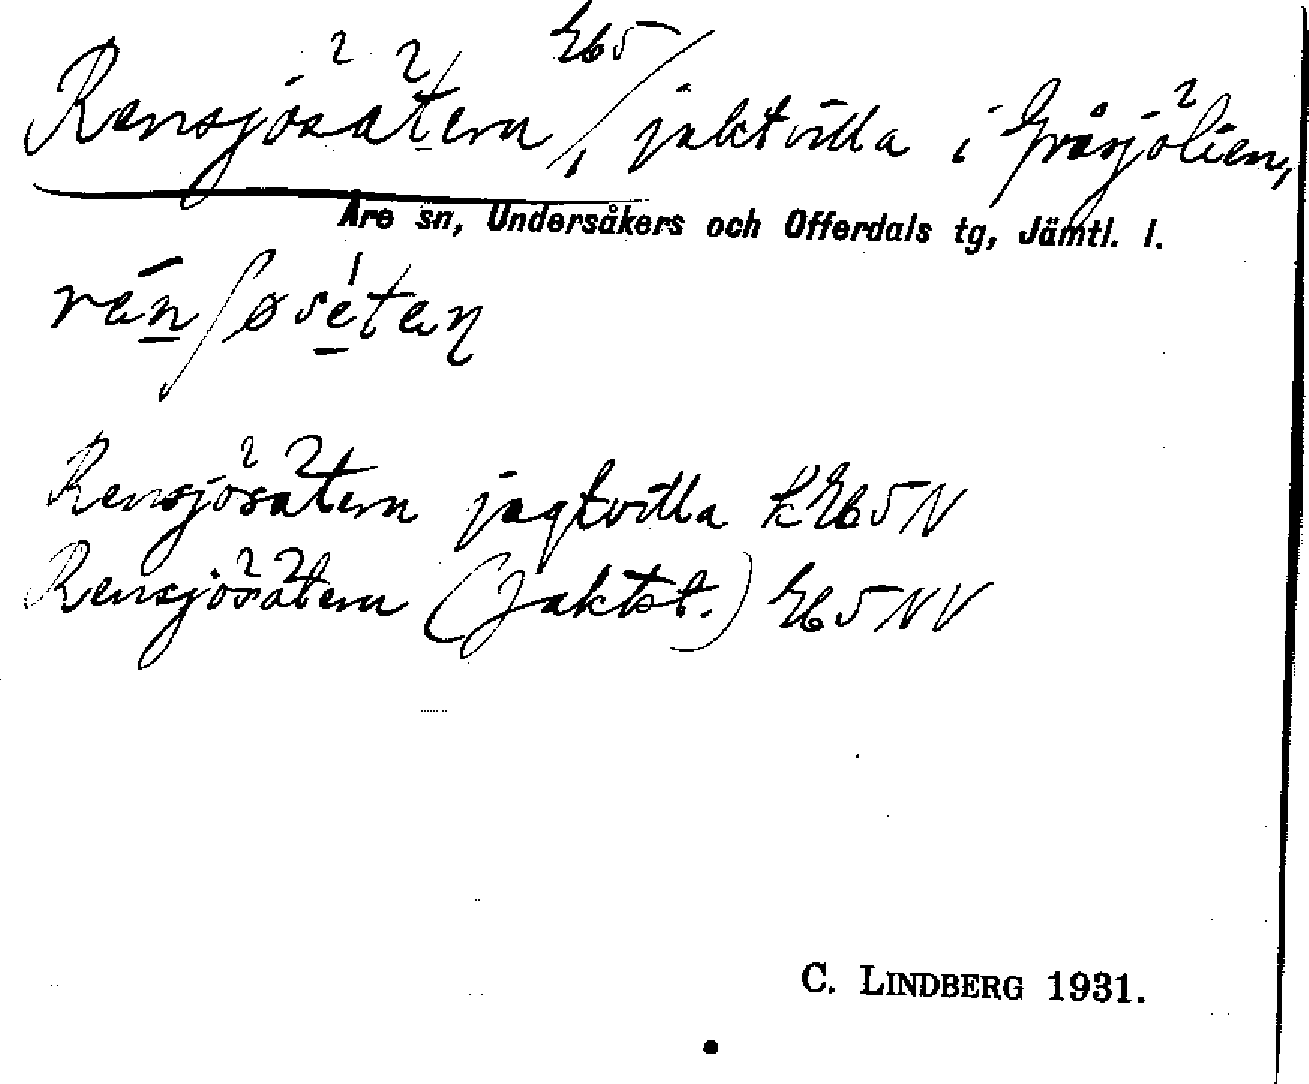 Eb5
Rensjösätern, jaktvilla i Gråsjölien,
Åre sn, Undersåkers och Offerdals tg, Jämtl. l.
Rensjösätern jagtvilla k Eb5N
Rensjösätern (Jaktst.) Eb5NV
C. LINDBERG 1931.